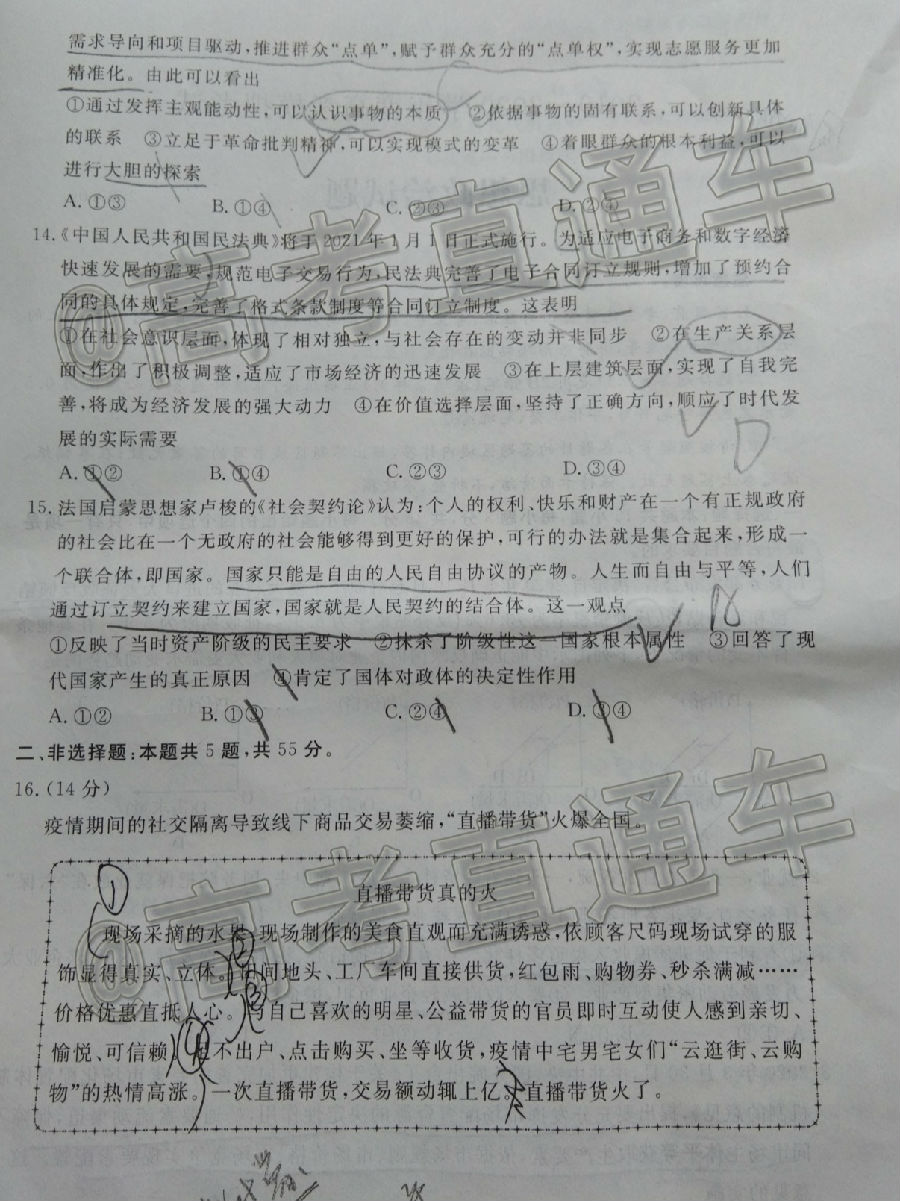 需求导向和项目驱动,推进群众“点单”,赋予群众充分的“点单权”,实现志愿服务更加
精准化。由此可以看出
①通过发挥主观能动性,可以认识事物的本质 ②依据事物的固有联系,可以创新具体
的联系 ③立足于革命批判精神,可以实现模式的变革 ④着眼群众的根本利益,可以
进行大胆的探索
A.①③ B.①④ C.②③ D.②④
14.《中国人民共和国民法典》将于2021年1月1日正式施行。为适应电子商务和数字经济
快速发展的需要,规范电子交易行为,民法典完善了电子合同订立规则,增加了预约合
同的具体规定,完善了格式条款制度等合同订立制度。这表明
①在社会意识层面,体现了相对独立,与社会存在的变动并非同步 ②在生产关系层
面,作出了积极调整,适应了市场经济的迅速发展 ③在上层建筑层面,实现了自我完
善,将成为经济发展的强大动力 ④在价值选择层面,坚持了正确方向,顺应了时代发
展的实际需要
D
A.①② B.①④ C.②③ D.③④
15.法国启蒙思想家卢梭的《社会契约论》认为:个人的权利、快乐和财产在一个有正规政府
的社会比在一个无政府的社会能够得到更好的保护,可行的办法就是集合起来,形成一
个联合体,即国家。国家只能是自由的人民自由协议的产物。人生而自由与平等,人们
通过订立契约来建立国家,国家就是人民契约的结合体。这一观点
①反映了当时资产阶级的民主要求 ②抹杀了阶级性这一国家根本属性 ③回答了现
代国家产生的真正原因 ④肯定了国体对政体的决定性作用
A.①② B.①③ C.②④ D.③④
二、非选择题:本题共5题,共55分。
16.(14分)
疫情期间的社交隔离导致线下商品交易萎缩,“直播带货”火爆全国。
①
直播带货真的火
现场采摘的水果、现场制作的美食直观而充满诱惑,依顾客尺码现场试穿的服
饰显得真实、立体。田间地头、工厂车间直接供货,红包雨、购物券、秒杀满减……
②
价格优惠直抵人心。与自己喜欢的明星、公益带货的官员即时互动使人感到亲切、
③
愉悦、可信赖。足不出户、点击购买、坐等收货,疫情中宅男宅女们“云逛街、云购
④
物”的热情高涨。一次直播带货,交易额动辄上亿。直播带货火了。
@高考直通车
@高考直通车